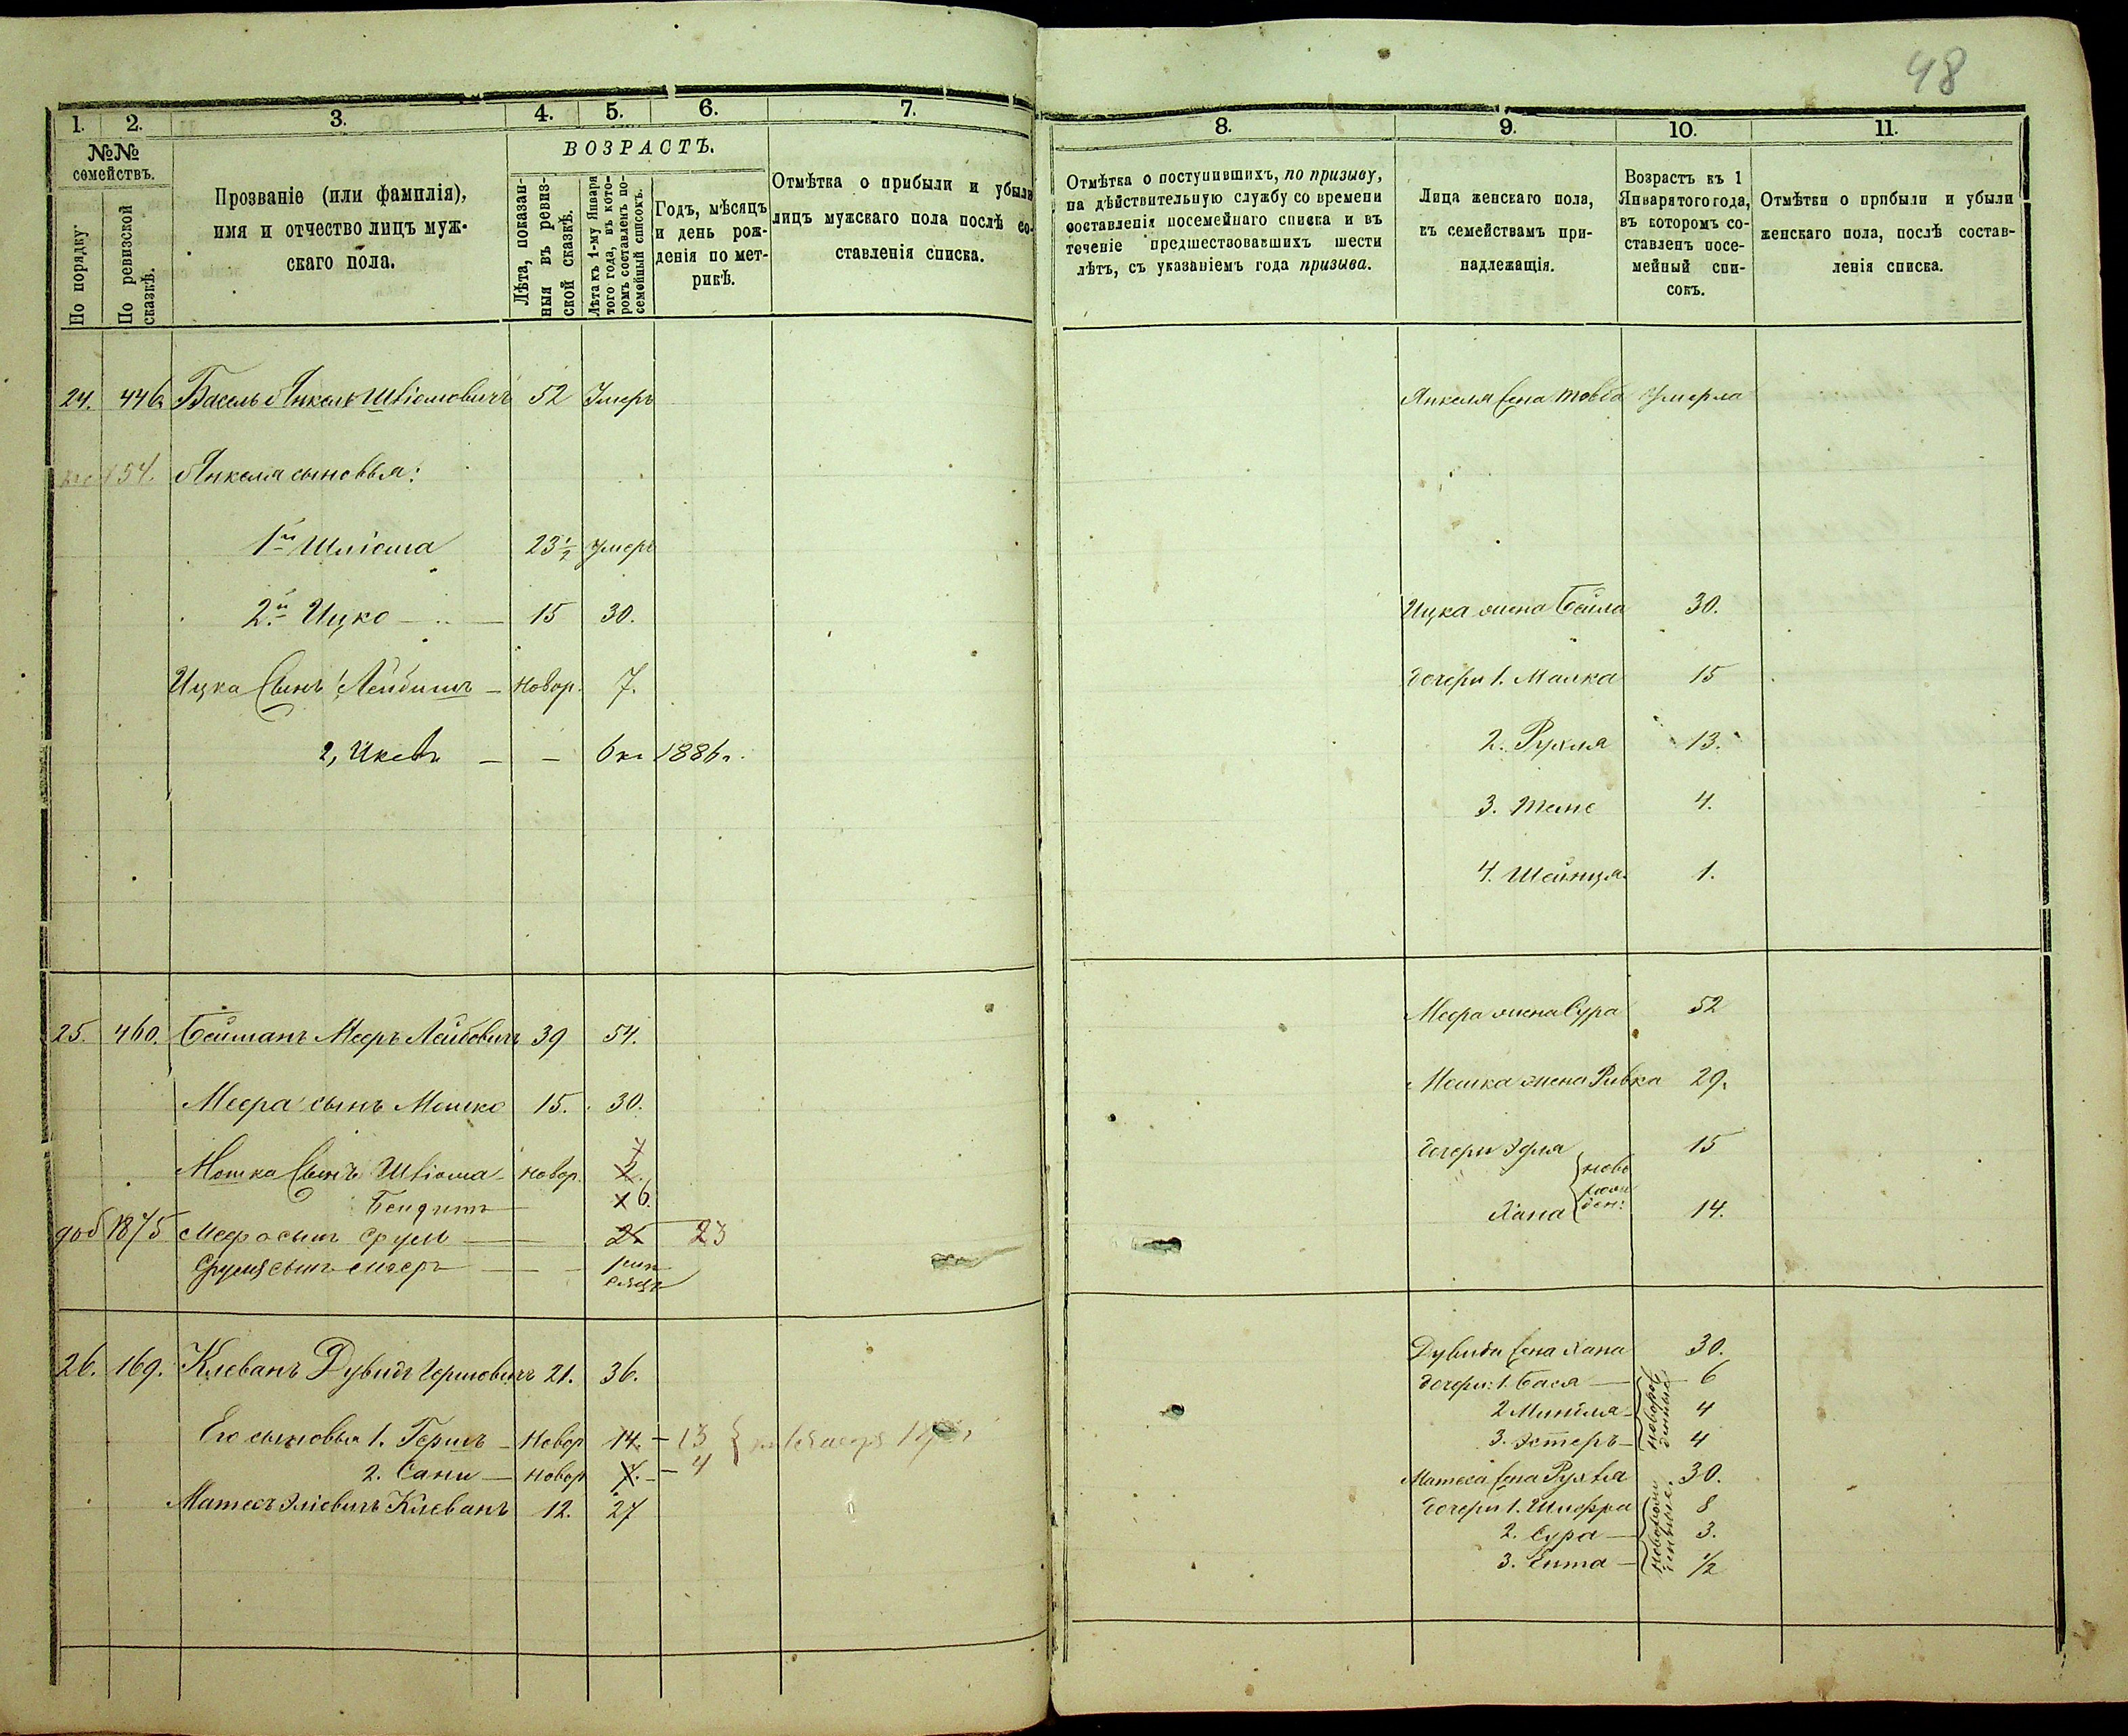 48
1. 2. 3. 4. 5. 6. 7.
№№
семействъ.
По порядку
По ревизской
сказкѣ.
Прозваніе (или фамилія),
имя и отчество лицъ муж-
скаго пола.
ВОЗРАСТЪ.
Лѣта, показан-
ныя въ ревиз-
ской сказкѣ.
Лѣта къ 1-му Января
того года, въ кото-
ромъ составленъ по-
семейный списокъ.
Годъ, мѣсяцъ
и день рож-
денія по мет-
рикѣ.
Отмѣтка о прибыли и убыли
лицъ мужскаго пола послѣ со-
ставленія списка.
24. 446 Янкель Шліомовичъ 52 Умеръ
54. Янкеля сыновья:
1й Шліома 23½ умеръ
2й Ицко 15 30.
Ицка Сынъ 1, Лейбишъ Новор. 7.
2, 1886 г.
25. 460. Бейманъ Мееръ Лейбовичъ 39 54.
Меера сынъ Мошко 15. 30.
7
Мошка Сынъ Шліома новор. 2.
6.
доб 1875 Меера сынъ Сруль 25 23
Сруля сынъ Меер
26. 169. Клеванъ Дувидъ Гершовичъ 21. 36.
Его сыновья 1. Гершъ Новор 14. - 13
2. Сани новор 7. - 4
Матесъ Эліовичъ Клеванъ 12. 27
8. 9. 10. 11.
Отмѣтка о поступившихъ, по призыву,
на дѣйствительную службу со времени
составленія посемейнаго списка и въ
теченіе предшествовавшихъ шести
лѣтъ, съ указаніемъ года призыва.
Лица женскаго пола,
къ семействамъ при-
надлежащія.
Возрастъ къ 1
Января того года,
въ которомъ со-
ставленъ посе-
мейный спи-
сокъ.
Отмѣтки о прибыли и убыли
женскаго пола, послѣ состав-
ленія списка.
Янкеля жена Товба Умерла
Ицка жена Бейла 30.
дочери 1. Малка 15
2. Рухля 13.
3. 4.
4. Шейнця 1.
Меера жена Сура 52
Мошка жена Ривка 29.
дочери Эдля 15
ново
рож
ден:
Хана 14.
Дувида жена Хана 30.
дочери: 1. Бася 6
2 4
3. Эстеръ 4
новорож
денные
Матеса жена Рухля 30.
дочери 1. Шифра 8
2. Сура 3.
3. Ента ½
новорож
денные.